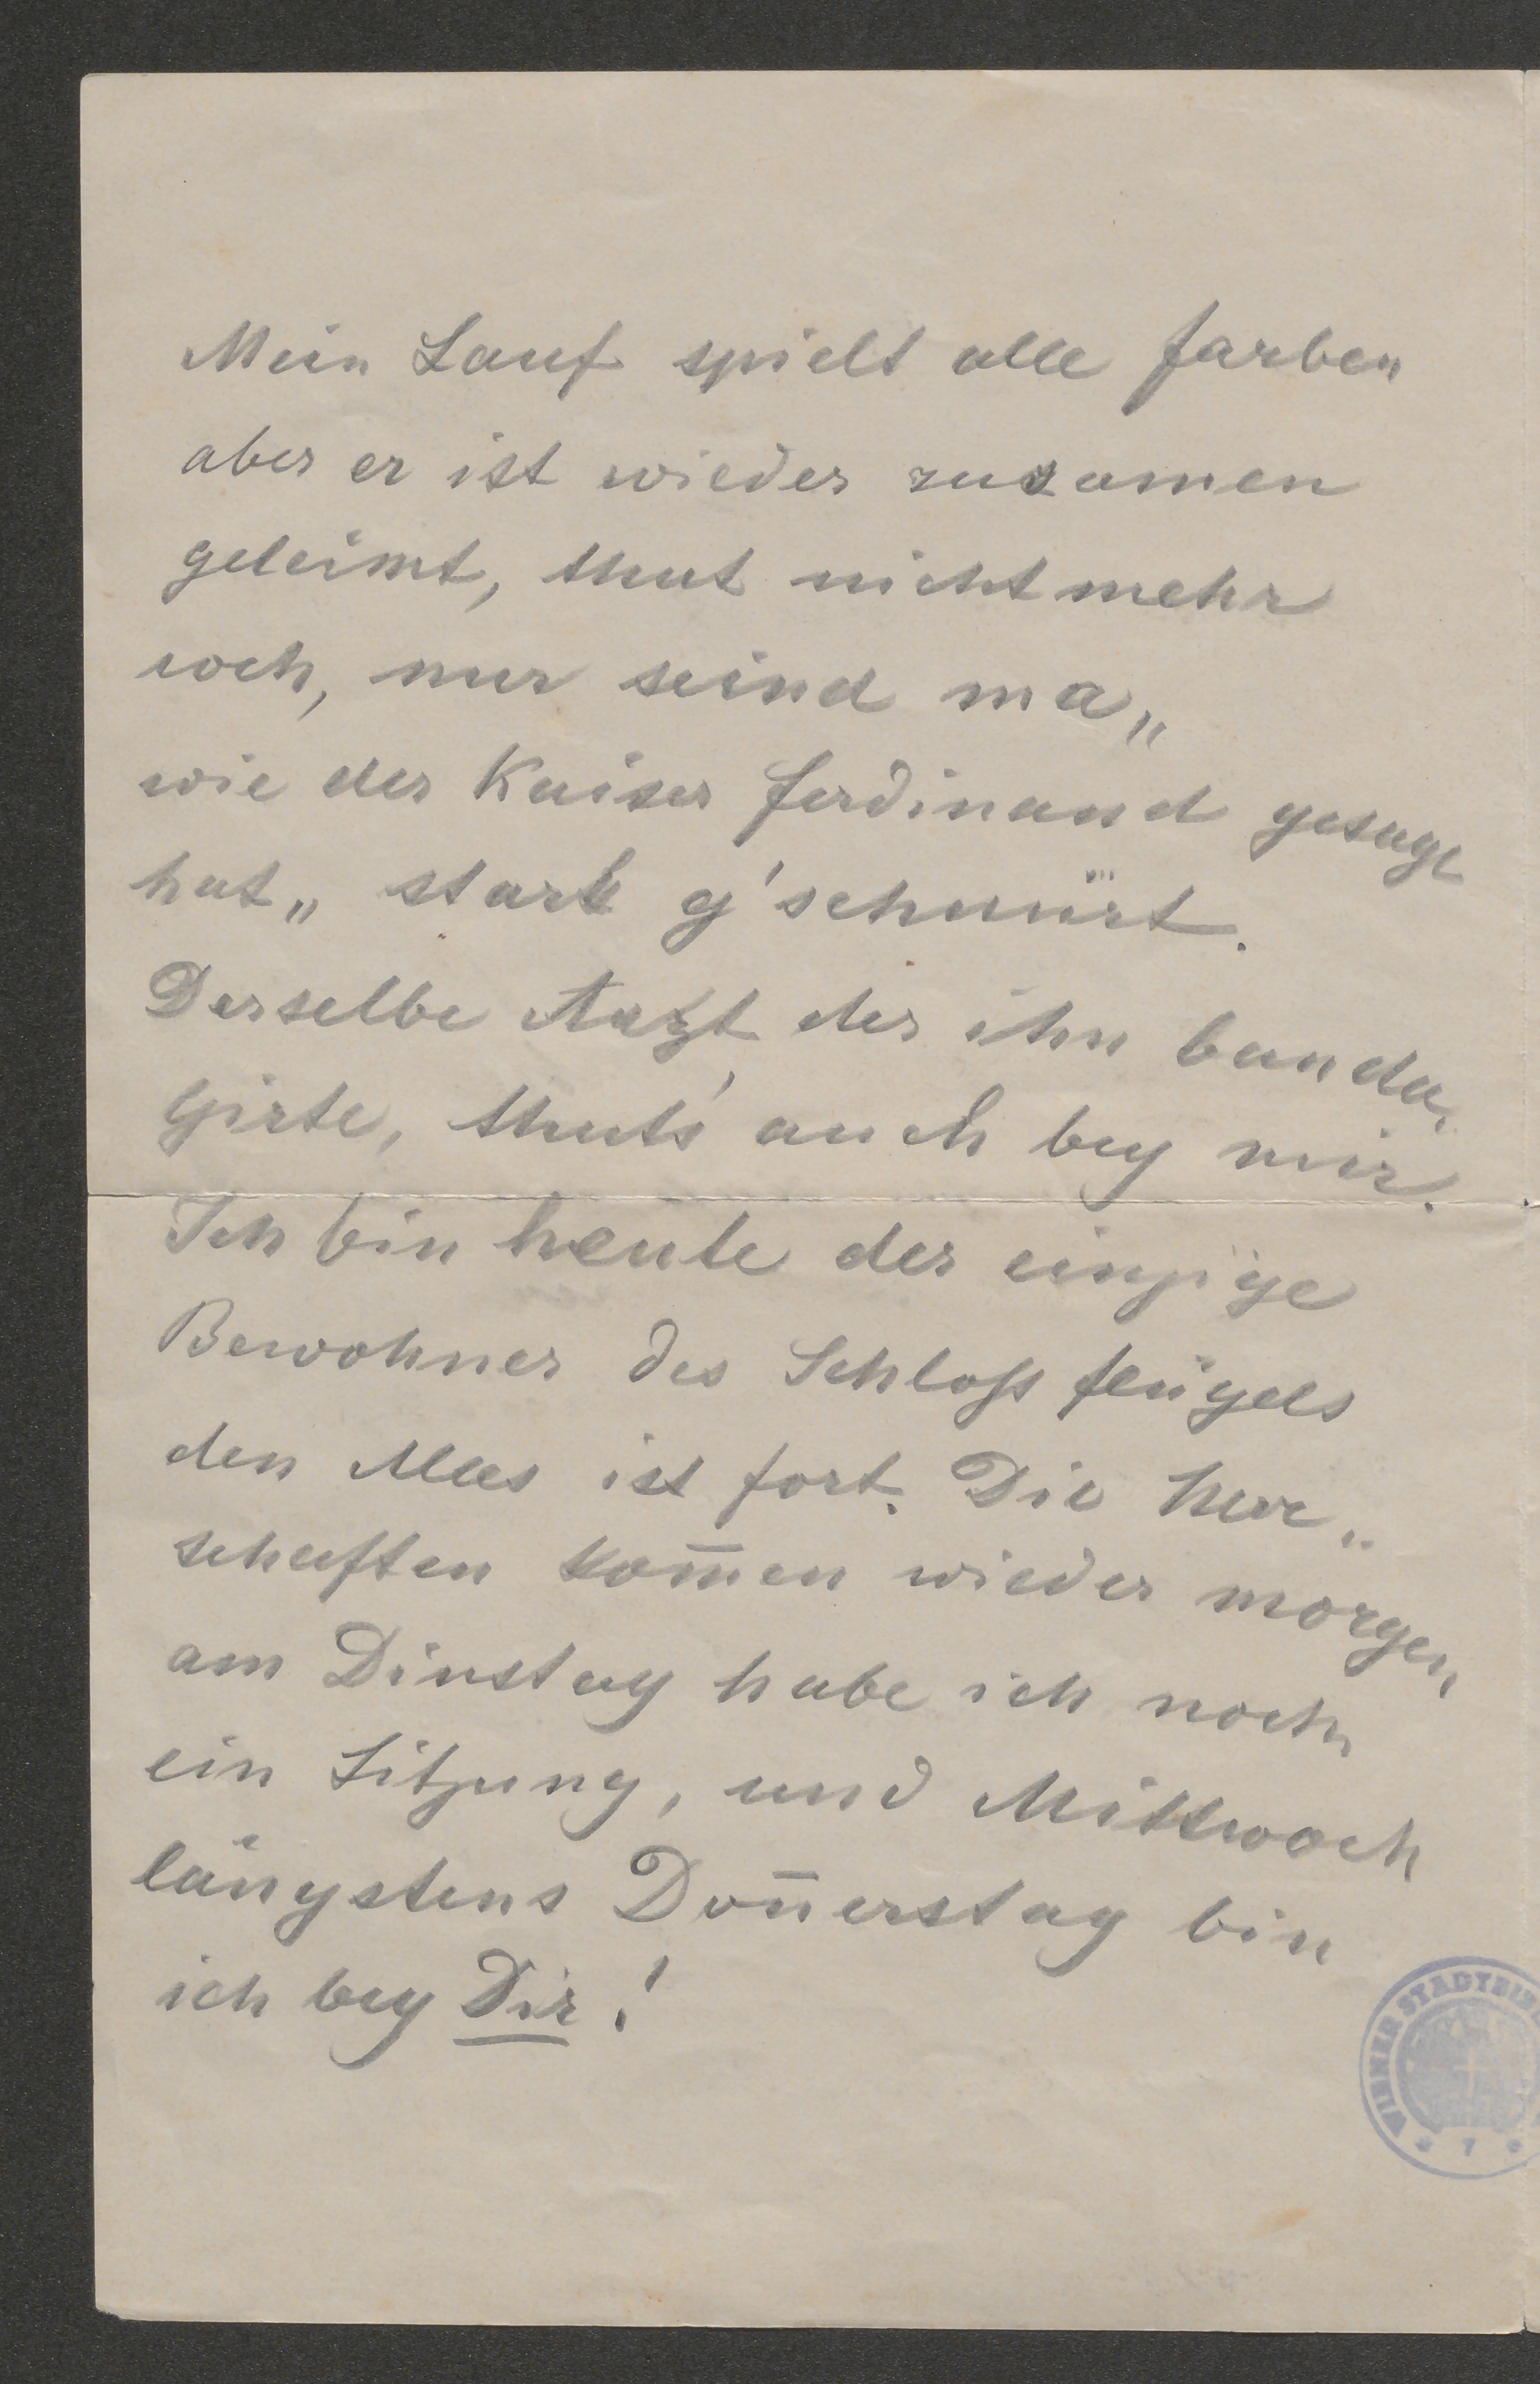 Mein Lauf spielt alle farben
aber er ist wieder zusamen
geleimt, thut nicht mehr
weh, nur seind ma„
wie der Kaiser ferdinand gesagt
hat„ stark g'schnürt.
Derselbe Arzt, der ihn banda„
girte, thut's auch bey mir.
Ich bin heute der einzige
Bewohner des Schloß flügels
den Alles ist fort. Die Herr„
schaften kom̅en wieder morgen,
am Dinstag habe ich noch
ein Sitzung, und Mittwoch
längstens Don̅erstag bin
ich bey Dir!
WIENER STADTBI